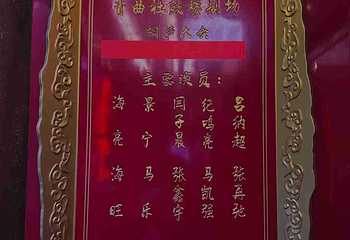 青曲社鼓楼剧场
相声大会
主要演员:
吕纳超
纪鸣亮
闫子晨
景宁
海亮
张再弛
马凯强
张鑫宇
马乐
海旺